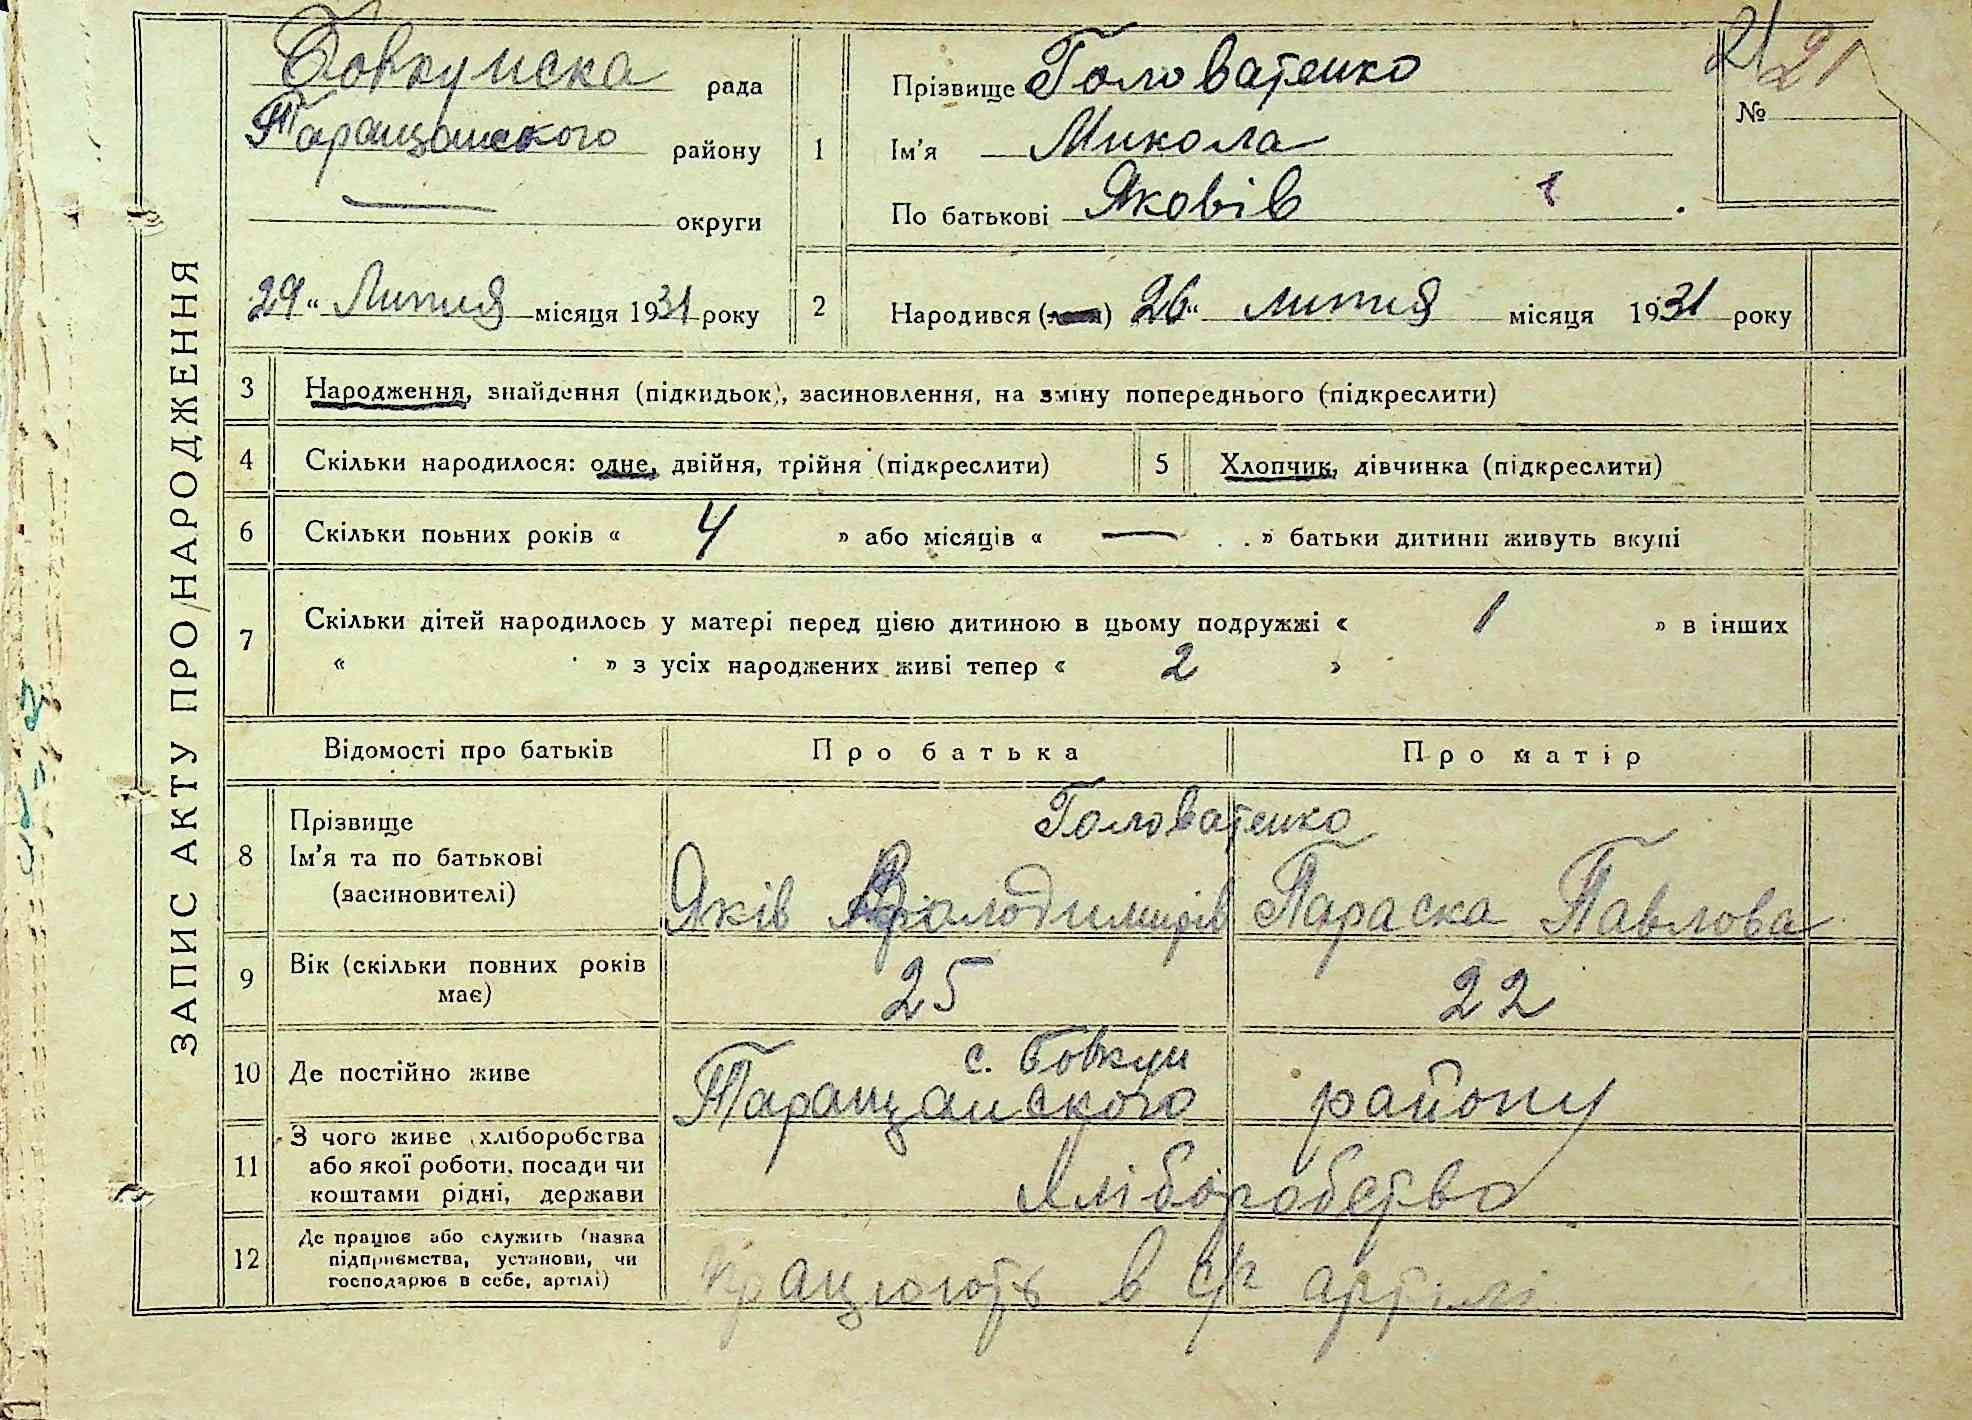 ЗАПИС АКТУ ПРО НАРОДЖЕННЯ
Бовкунска рада
Таращанського району
— округи
29 “ Липня місяця 1931 року
21 21
№
1 Прізвище Головатенко
Ім'я Микола
По батькові Яковів
2 Народився ( ) 26 “ липня місяця 1931 року
3 Народження, знайдення (підкидьок), засиновлення, на зміну попереднього (підкреслити)
4 Скільки народилося: одне, двійня, трійня (підкреслити) 5 Хлопчик, дівчинка (підкреслити)
6 Скільки повних років « 4 » або місяців « — » батьки дитини живуть вкупі
7 Скільки дітей народилось у матері перед цією дитиною в цьому подружжі « 1 » в інших
« » з усіх народжених живі тепер « 2 »
Відомості про батьків Про батька Про матір
8 Прізвище Головатенко
Ім'я та по батькові
(засиновителі) Яків Володимирів Параска Павлова
9 Вік (скільки повних років
має) 25 22
с. Бовкун
10 Де постійно живе Таращанського району
11 З чого живе (хліборобства
або якої роботи, посади чи
коштами рідні, держави Хліборобство
12 Де працює або служить (назва
підприємства, установи, чи
господарює в себе, артілі) працюють в с/г артілі